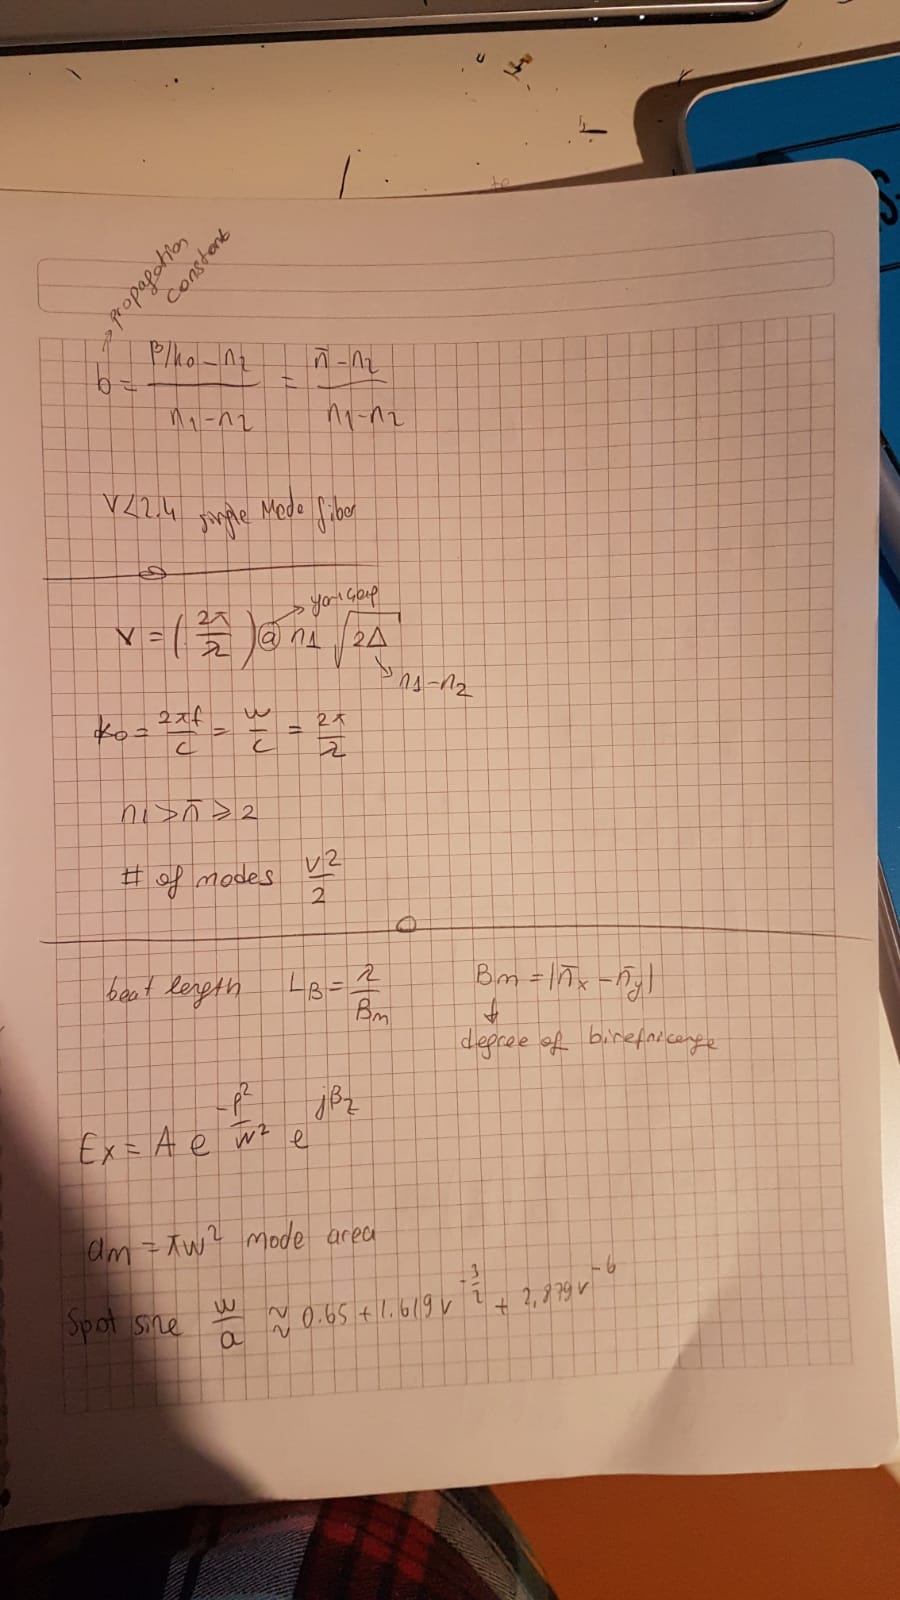 propagation
constant
b = (β/k0 - n2)/(n1 - n2) = (n̄ - n2)/(n1 - n2)
V<2.4 single Mode fiber
V = (2π/λ) a n1 √2Δ
yarıçap
n1 - n2
k0 = 2πf/c = w/c = 2π/λ
n1 > n̄ ⩾ 2
# of modes V²/2
beat length LB = λ/Bm Bm = |n̄x - n̄y|
degree of birefricenge
Ex = A e^(-ρ²/w²) e^(jβz)
am = πw² mode area
Spot size w/a ≈ 0.65 + 1.619 V^(-3/2) + 2,879 V^-6